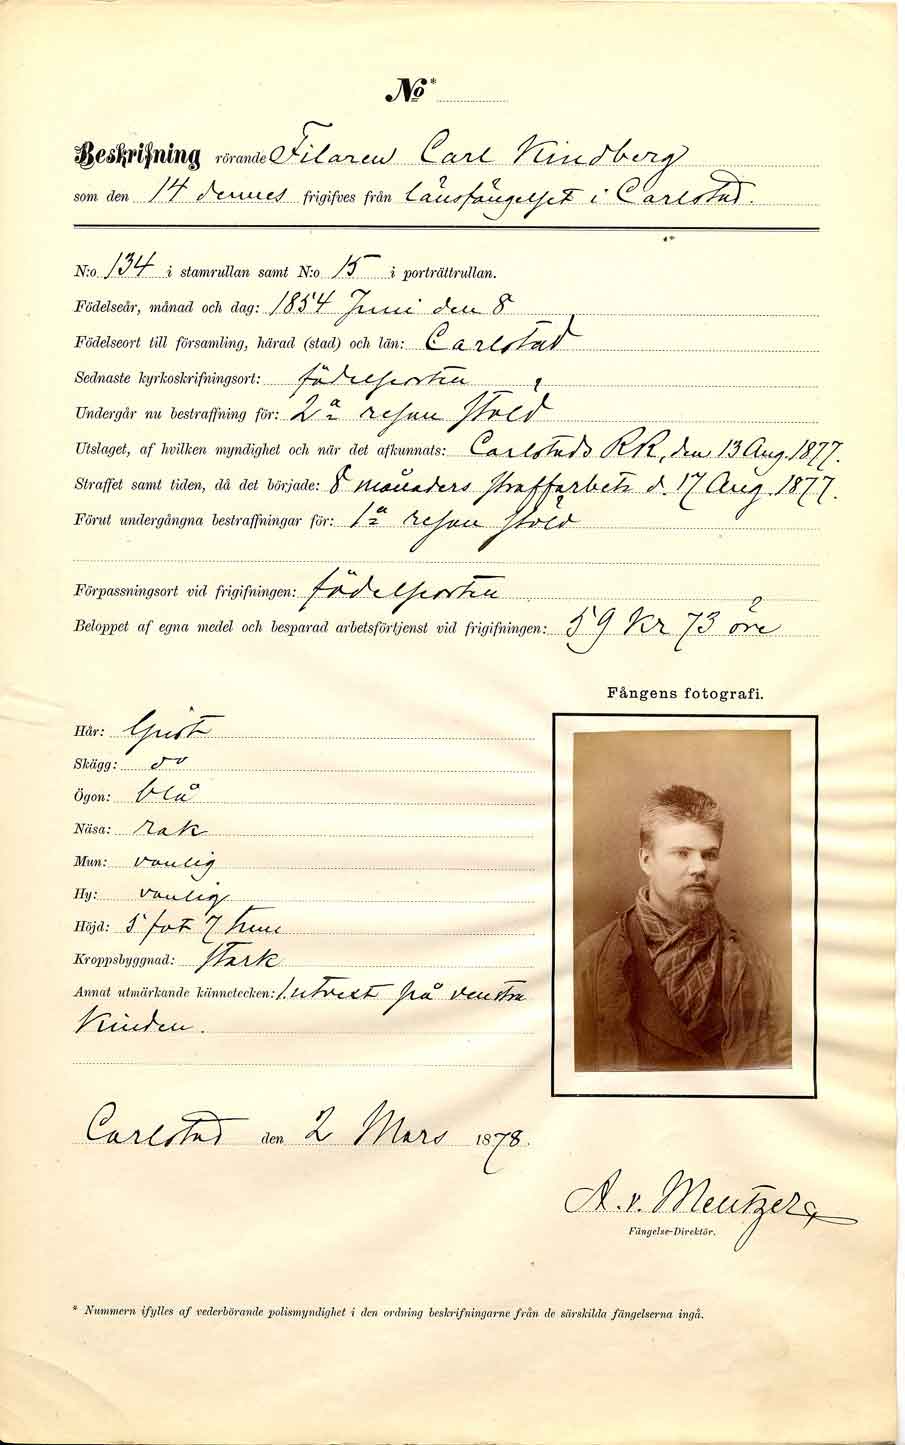 No*
Beskrifning rörande Filaren Carl Kindberg
som den 14 dennes frigifves från länsfängelset i Carlstad.
N:o 134 i stamrullan samt N:o 15 i porträttrullan.
Födelseår, månad och dag: 1854 Juni den 8
Födelseort till församling, härad (stad) och län: Carlstad
Sednaste kyrkoskrifningsort: födelseorten
Undergår nu bestraffning för: 2a resan stöld
Utslaget, af hvilken myndighet och när det afkunnats: Carlstads RR, den 13 Aug. 1877.
Straffet samt tiden, då det började: 8 månaders straffarbete d. 17 Aug. 1877.
Förut undergångna bestraffningar för: 1a resan stöld
Förpassningsort vid frigifningen: födelseorten
Beloppet af egna medel och besparad arbetsförtjenst vid frigifningen: 59 Kr 73 öre
Fångens fotografi.
Hår: ljust
Skägg: do
Ögon: blå
Näsa: rak
Mun: vanlig
Hy: vanlig
Höjd: 5 fot 7 tum
Kroppsbyggnad: stark
Annat utmärkande kännetecken: 1. utvext på venstra
Kinden.
Carlstad den 2 Mars 1878.
A. v. Mentzer
Fängelse-Direktör.
* Nummern ifylles af vederbörande polismyndighet i den ordning beskrifningarne från de särskilda fängelserna ingå.